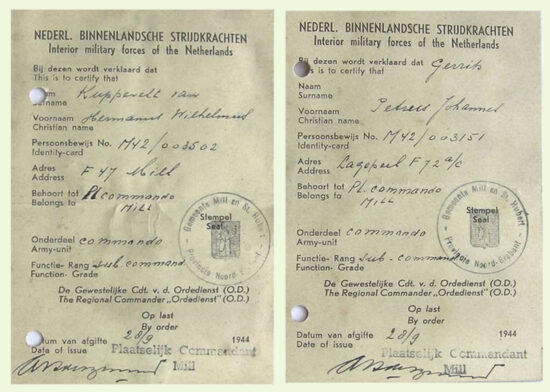 NEDERL. BINNENLANDSCHE STRIJDKRACHTEN
Interior military forces of the Netherlands
Bij dezen wordt verklaard dat
This is to certify that
Naam Kuppevelt van
Surname
Voornaam Hermanus Wilhelmus
Christian name
Persoonsbewijs No. M42/003502
Identity-card
Adres F 47 Mill
Address
Behoort tot Pl. commando
Belongs to MILL
Stempel
Seal
Gemeente Mill en St. Hubert
Provincie Noord-Brabant
Onderdeel commando
Army-unit
Functie- Rang sub. command
Function- Grade
De Gewestelijke Cdt. v. d. Ordedienst (O.D.)
The Regional Commander „Ordedienst" (O.D.)
Op last
By order
Datum van afgifte 28/9 1944
Date of issue
Plaatselijk Commandant
Mill
NEDERL. BINNENLANDSCHE STRIJDKRACHTEN
Interior military forces of the Netherlands
Bij dezen wordt verklaard dat
This is to certify that Gerrits
Naam
Surname
Voornaam Petrus Johannes
Christian name
Persoonsbewijs No. M42/003151
Identity-card
Adres Lagepeel F 72 a/c
Address
Behoort tot Pl. commando
Belongs to MILL
Stempel
Seal
Gemeente Mill en St. Hubert
Provincie Noord-Brabant
Onderdeel commando
Army-unit
Functie- Rang sub. command
Function- Grade
De Gewestelijke Cdt. v. d. Ordedienst (O.D.)
The Regional Commander „Ordedienst" (O.D.)
Op last
By order
Datum van afgifte 28/9 1944
Date of issue
Plaatselijk Commandant
Mill